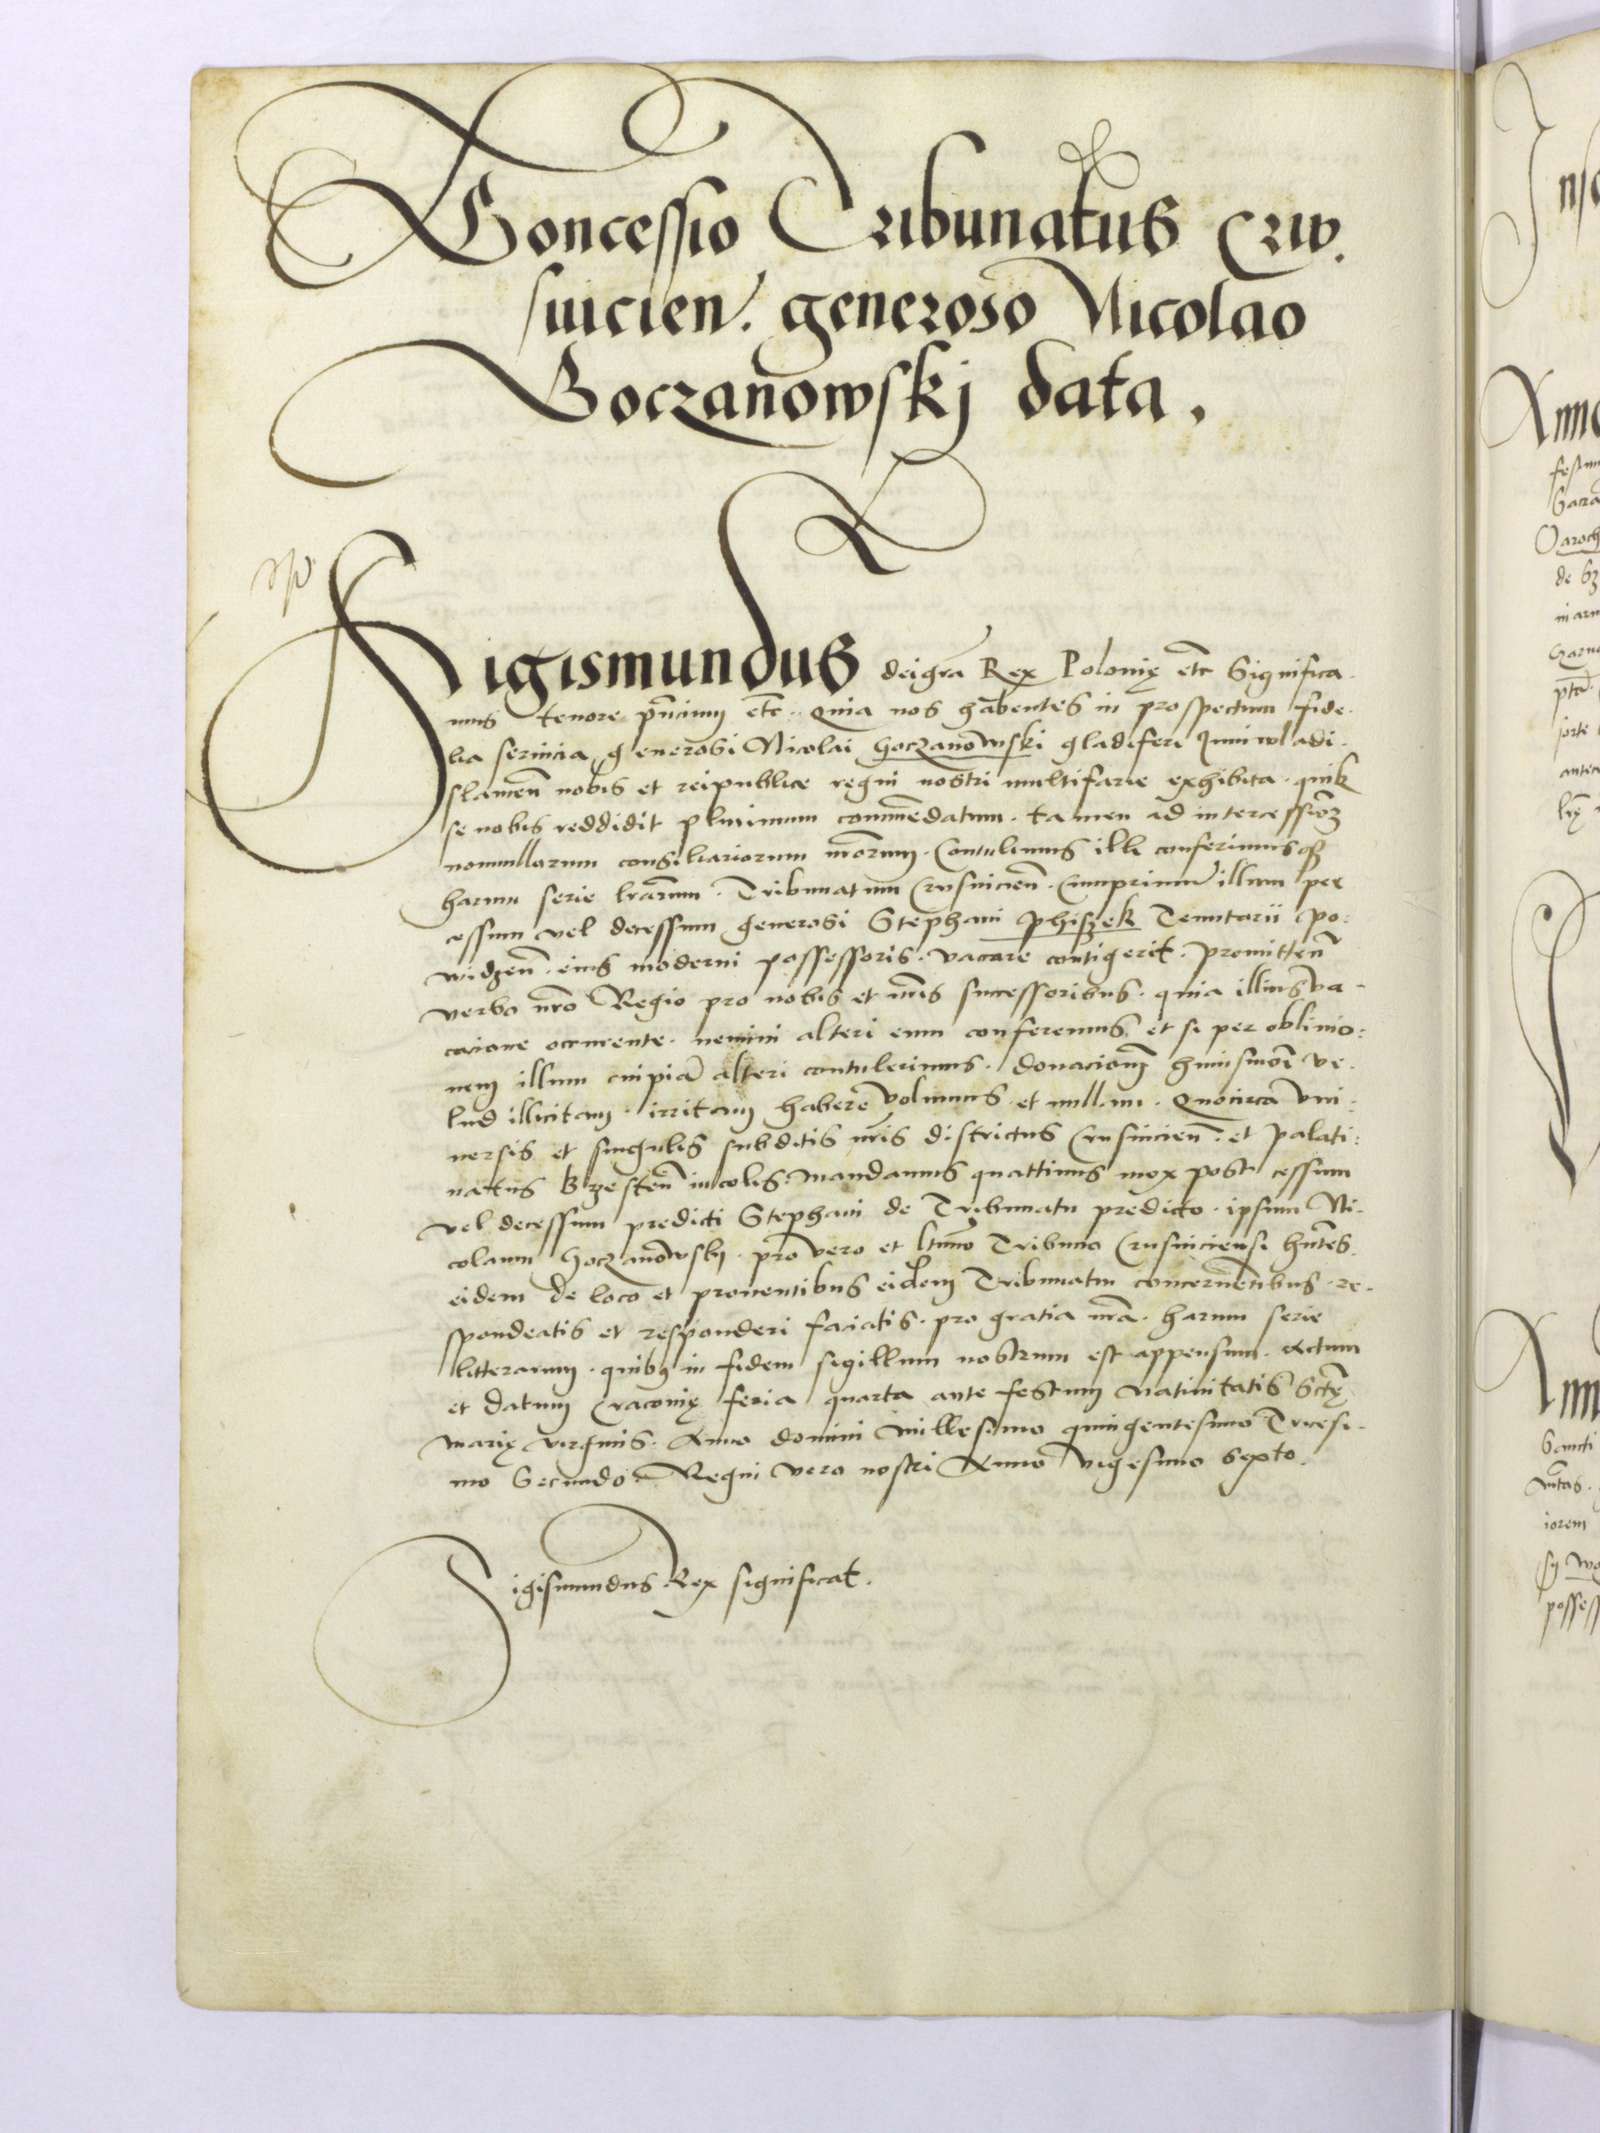 Concessio Tribunatus Criw.
suicien. generoso Nicolao
Goczanowskj data.
Sigismundus deigra Rex Polonię etc Significa
mus tenore pntium etc. Quia nos habentes in prospectum fide
lia seruicia generosi Nicolai Goczanowski gladiferi Iuniwladi
slauien nobis et reipublice regni nostri multifarie exhibita. quib
se nobis reddidit plurimum commedatum. tamen ad intercessioe
nonnullorum consiliariorum nrorum. Contulimus illi conferimusq
harum serie lrarum. Tribunatum Crusuicien. Cumprimum illum per
cessum vel decessum generosi Stephani Phiszek Tenutarii Po:
widzen. eius moderni possessoris. vacare contigerit. promitten
verbo nro Regio pro nobis et nris successoribus. quia illius va
cacione occurrente. nemini alteri eum conferemus. et si per obliuio:
nem illum cuipia alteri contulerimus. donacionem huiusmoi ve
lud illicitam. irritam habere volumus et nullam. Quocirca vni:
uersis et singulis subditis nris districtus Crusuicien. et palati:
natus Brzesten incolis. mandamus quattinus mox post cessum
vel decessum predicti Stephani de Tribunatu predicto. ipsum Ni
colaum Goczanowskj. pro vero et ltimo Tribuno Crusuiciensi hntes.
eidem de loco et prouentibus eidem Tribunatui concernentibus. re
spondeatis et responderi faciatis. pro gratia nra. harum serie
litterarum. quibus in fidem sigillum nostrum est appensum. Actum
et datum Cracouię feria quarta ante festum Natiuitatis Sctę
Marię virginis. Anno domini Millesimo quingentesimo Tricesi
mo Secundo. Regni vero nostri Anno vigesimo Sexto.
Sigismundus Rex significat.